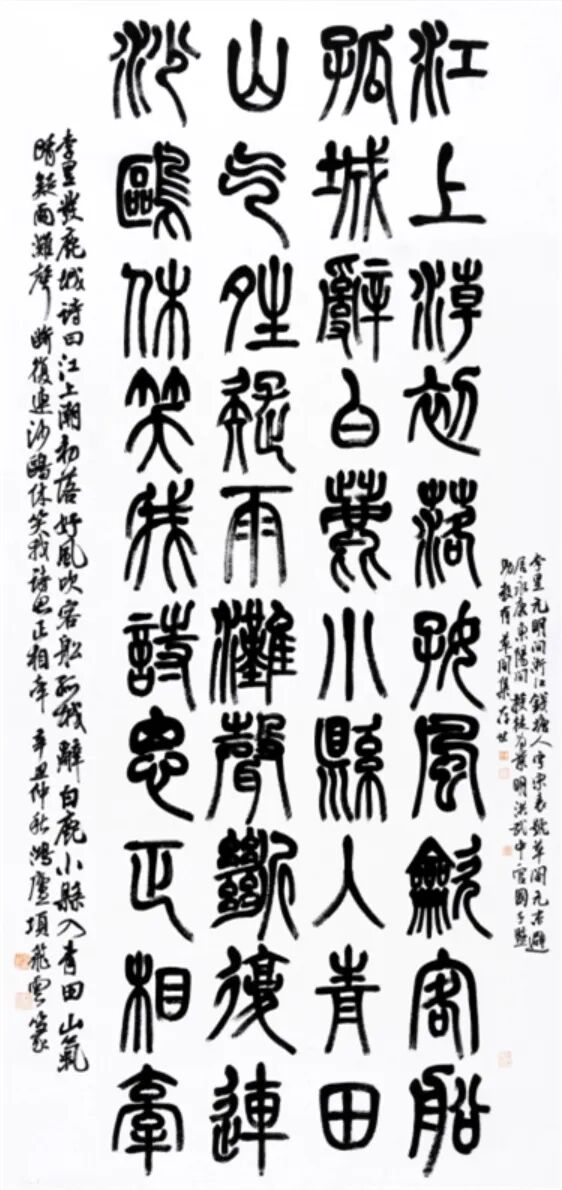 李昱元明間浙江錢塘人字宗表號草閣元末避
居永康東陽間授徒為業明洪武中官國子監
助教有草閣集存世
江上潮初落好風龡客船
孤城辭白鹿小縣人青田
山气夝疑雨灘聲斷復連
沙鷗休笑我詩思正相牽
李昱發鹿城詩曰江上潮初落好風吹客船孤城辭白鹿小縣入青田山氣
晴疑雨灘聲斷復連沙鷗休笑我詩思正相牽 辛丑仲秋鴻廬項飛雲篆